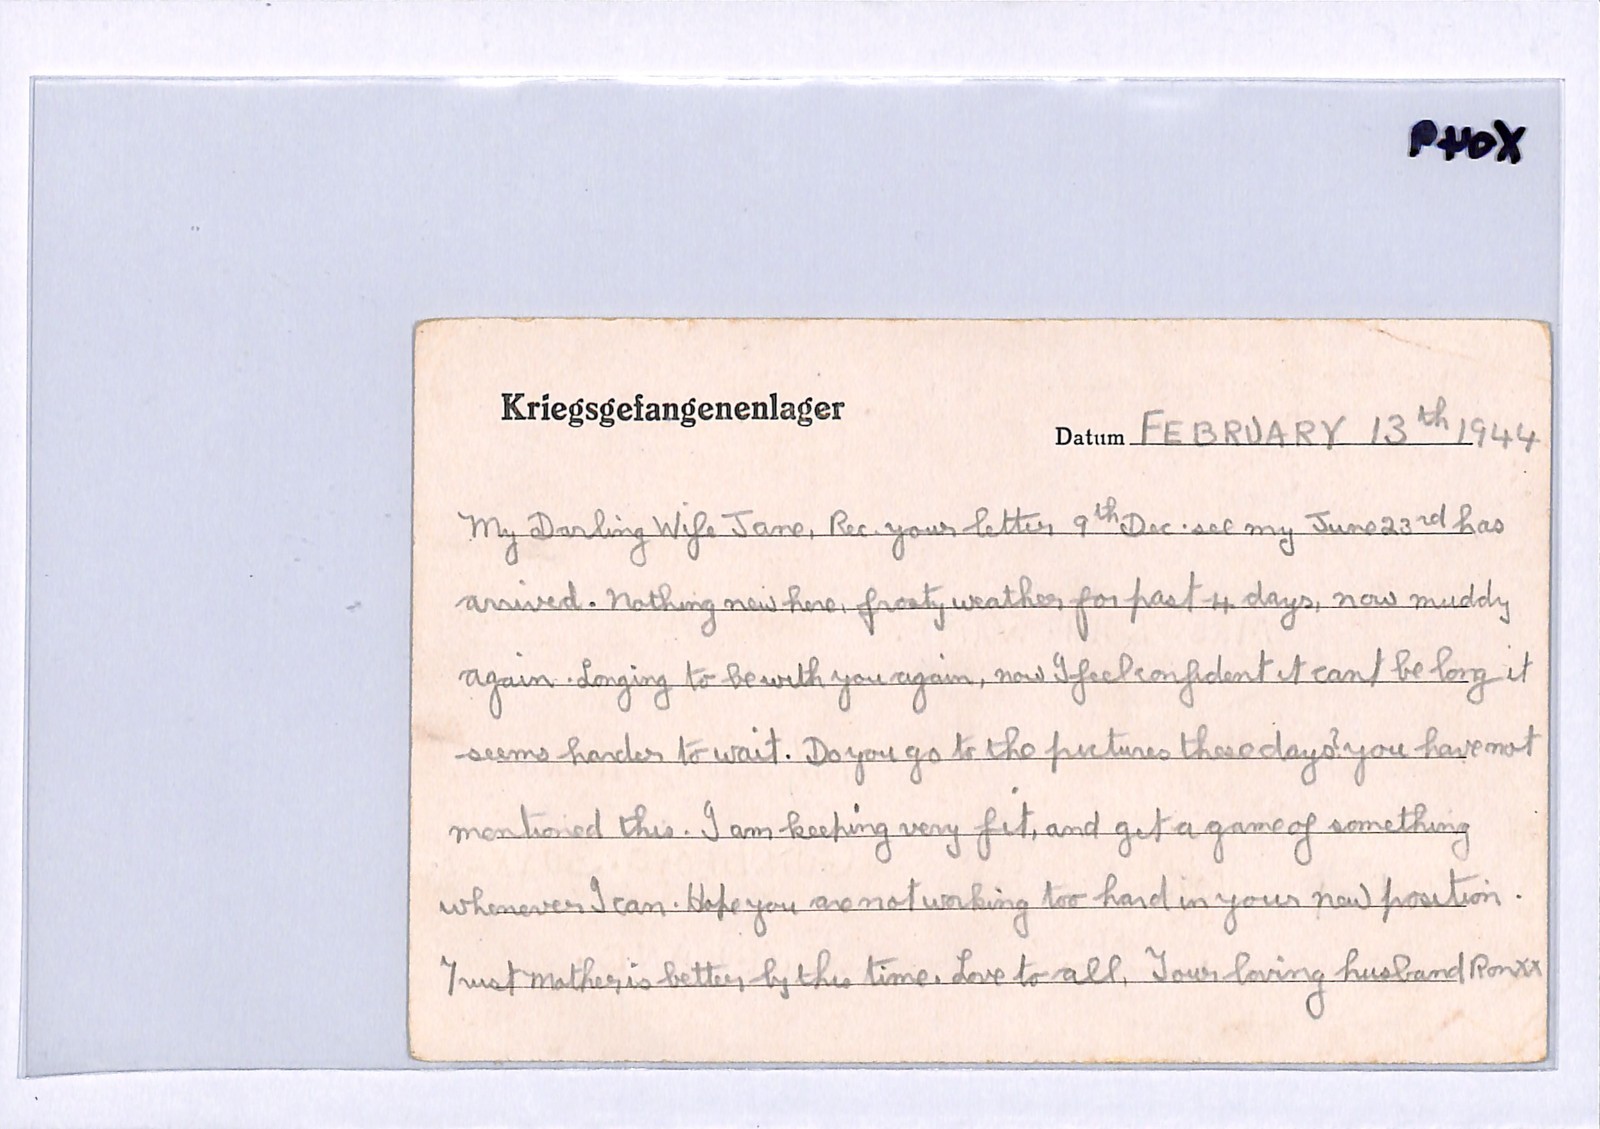 PHOX
Kriegsgefangenenlager
Datum FEBRUARY 13th 1944
My Darling Wife Jane, Rec. your letter 9th Dec. see my June 23rd has
arrived. Nothing new here, frosty weather for past 4 days, now muddy
again. Longing to be with you again, now I feel confident it can't be long it
seems harder to wait. Do you go to the pictures these days? you have not
mentioned this. I am keeping very fit, and get a game of something
whenever I can. Hope you are not working too hard in your new position.
Trust Mother is better by this time. Love to all, Your loving husband Ron xx